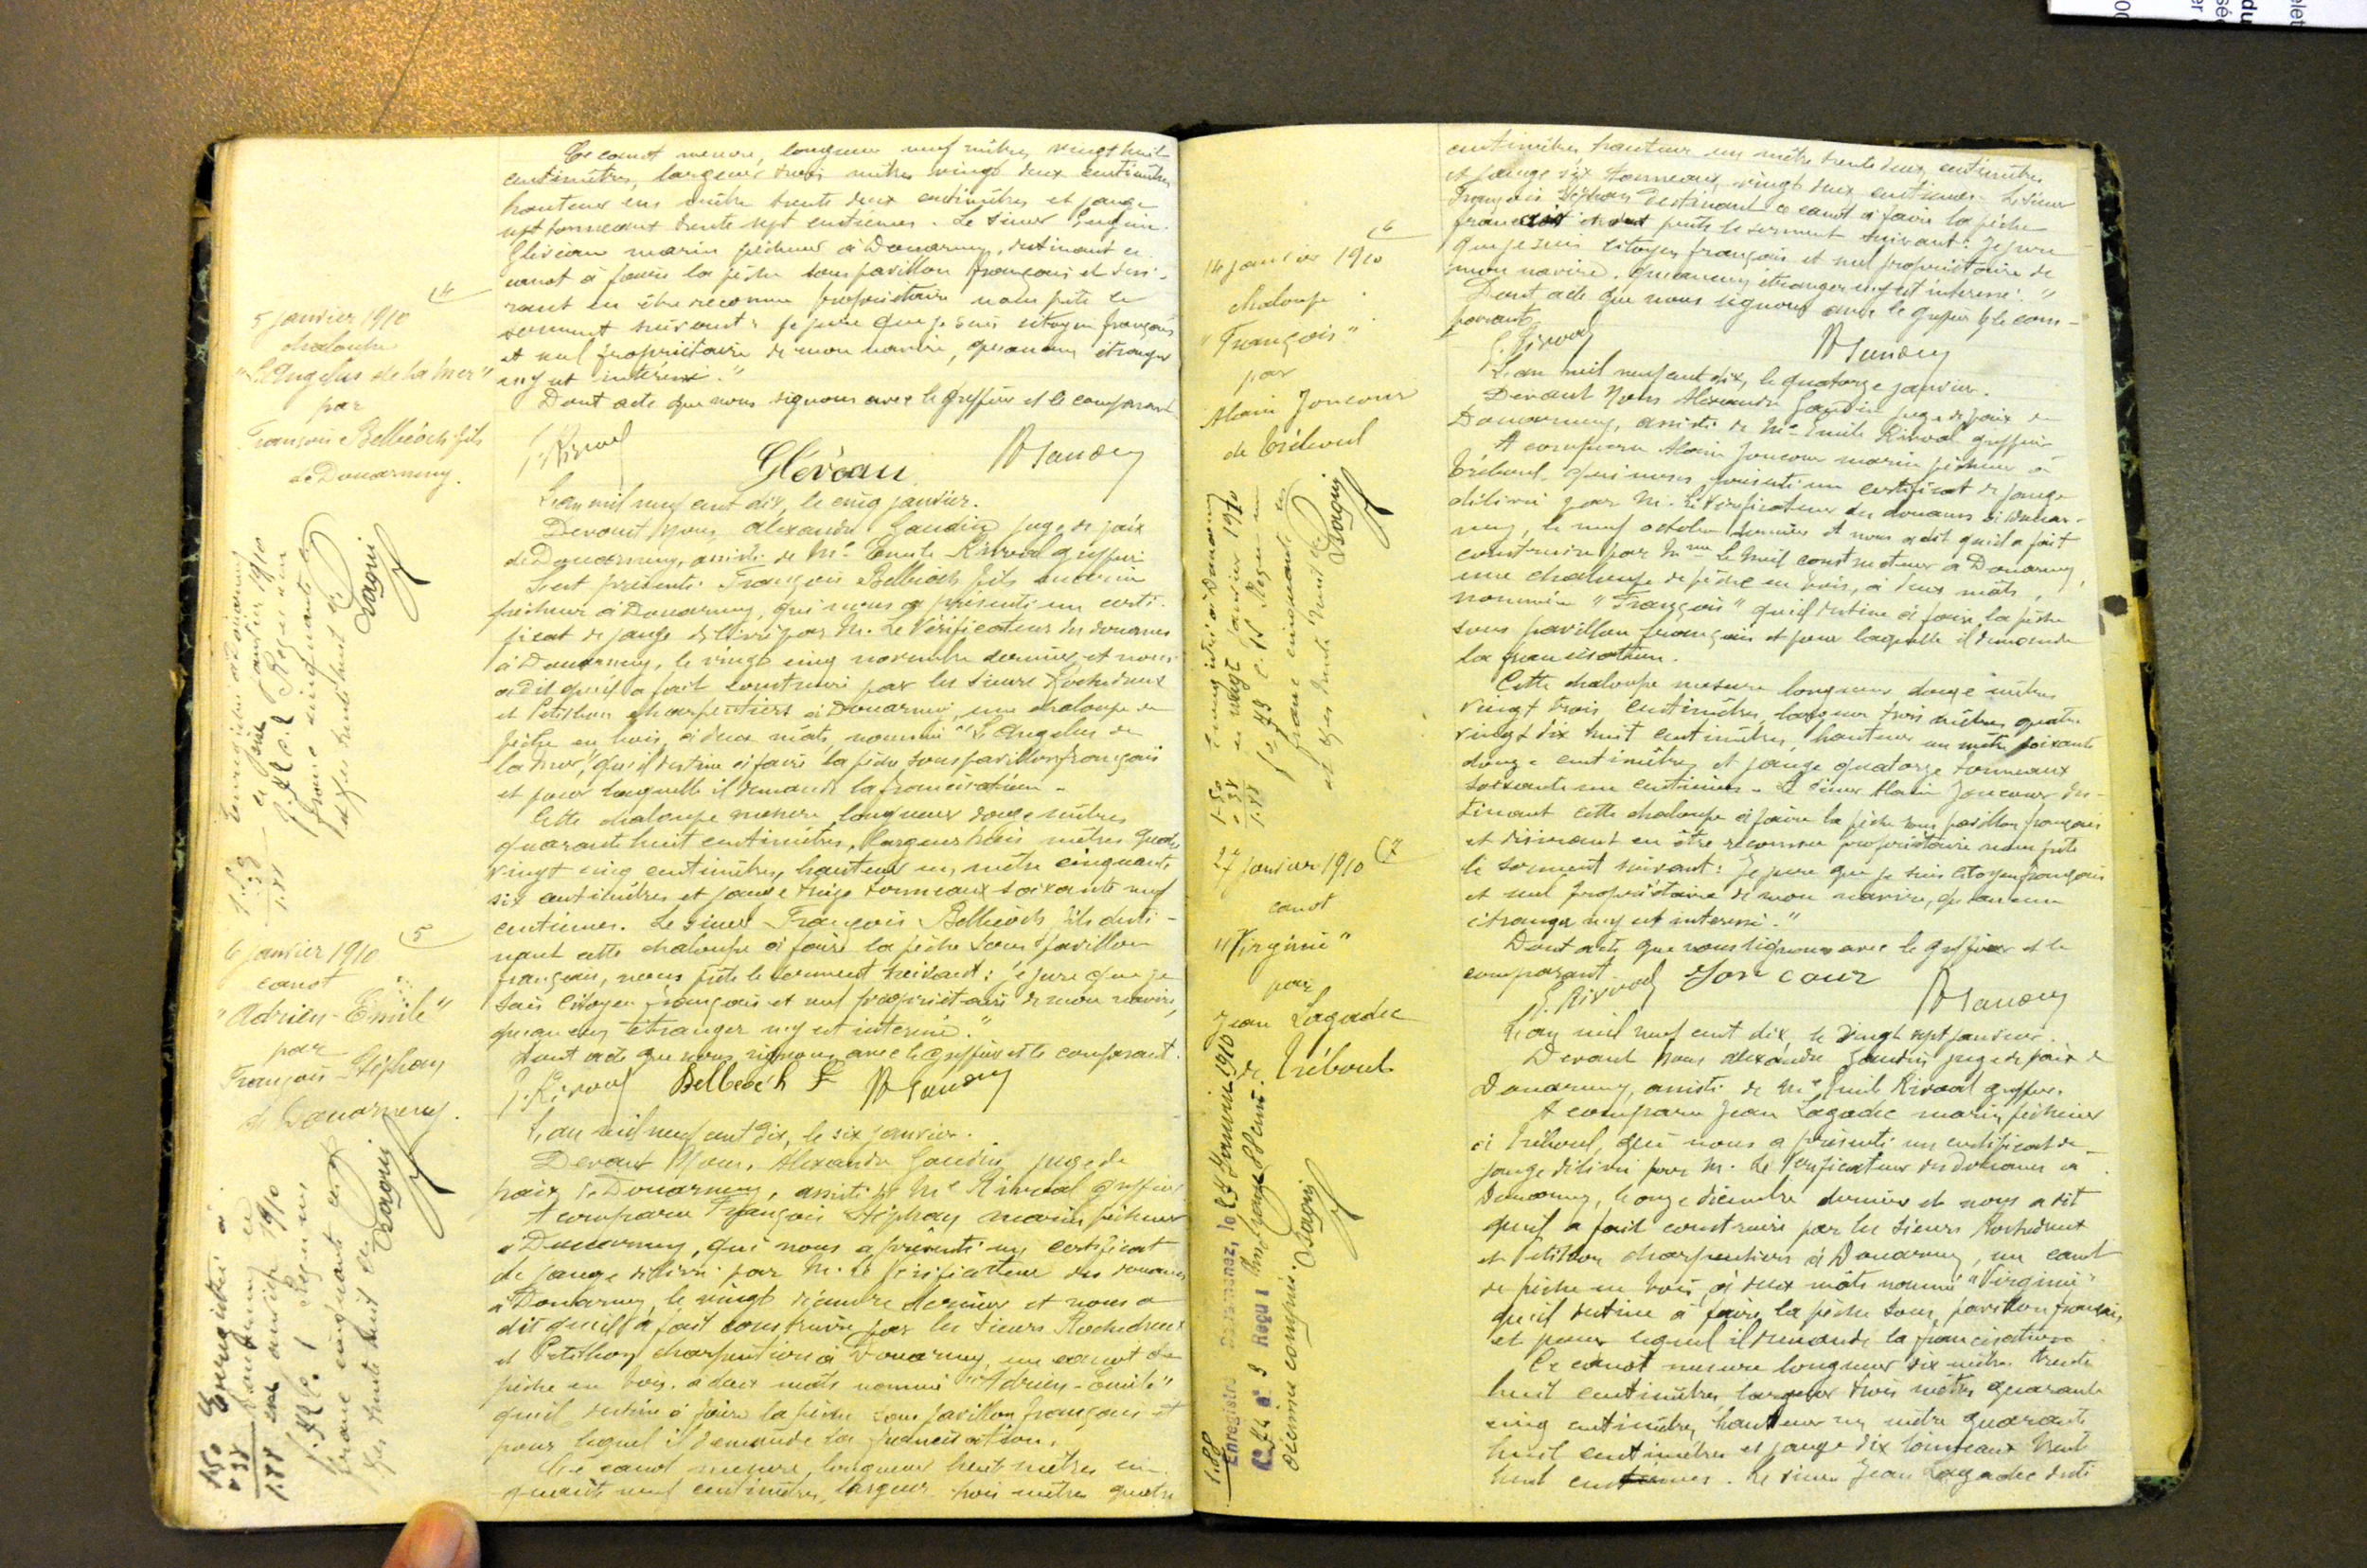 Ce canot mesure, longueur neuf mètres vingt huit
centimètres, largeur trois mètres vingt deux centimètres
hauteur un mètre trente deux centimètres et jauge
sept tonneaux trente sept centièmes. Le sieur
Glévéau marin pêcheur à Douarnenez, destinant ce
canot à faire la pêche sous pavillon français et dési-
rant en être reconnu propriétaire nous prête le
serment suivant: je jure que je suis citoyen français
et seul propriétaire de mon navire, qu'aucun étranger
n'y est intéressé."
Dont acte que nous signons avec le greffier et le comparant
E. Rivoal Glévéau A Gaudin
4
5 janvier 1910
chaloupe
"L'Angelus de la Mer"
par
François Belbéoch fils
de Douarnenez.
L'an mil neuf cent dix, le cinq janvier.
Devant Nous, Alexandre Gaudin juge de paix
de Douarnenez, assisté de Me Emile Rivoal greffier
S'est présenté François Belbéoch fils marin
pêcheur à Douarnenez, qui nous a présenté un certi-
ficat de jauge délivré par M. Le Vérificateur des douanes
à Douarnenez, le vingt cinq novembre dernier et nous
a dit qu'il a fait construire par les sieurs Rochedreux
et Petithon charpentiers à Douarnenez, une chaloupe de
pêche en bois, à deux mâts, nommée "L'Angelus de
la Mer", qu'il destine à faire la pêche sous pavillon français
et pour laquelle il demande la francisation.
Cette chaloupe mesure longueur douze mètres
quarante huit centimètres, largeur trois mètres quatre
vingt cinq centimètres, hauteur un mètre cinquante
six centimètres et jauge treize tonneaux soixante neuf
centièmes. Le sieur François Belbéoch fils desti-
nant cette chaloupe à faire la pêche sous pavillon
français, nous prête le serment suivant: "je jure que je
suis citoyen français et seul propriétaire de mon navire,
qu'aucun étranger n'y est intéressé."
Dont acte que nous signons avec le greffier et le comparant.
E. Rivoal Belbeoch F A Gaudin
Enregistré à Douarnenez
le six janvier 1910
f. 72 c. 2 Reçu un
franc cinquante c
et dxes trente huit c
1.50
0.38
1.88
5
6 janvier 1910
canot
"Adrien-Emile"
par
François Stéphan
de Douarnenez.
L'an mil neuf cent dix, le six janvier.
Devant Nous, Alexandre Gaudin juge de
paix de Douarnenez, assisté de Me Rivoal greffier
A comparu François Stéphan marin pêcheur
à Douarnenez, qui nous a présenté un certificat
de jauge délivré par M. le Vérificateur des douanes
à Douarnenez, le vingt décembre dernier et nous a
dit qu'il a fait construire par les sieurs Rochedreux
et Petithon charpentiers à Douarnenez, un canot de
pêche en bois. à deux mâts nommé "Adrien-Emile"
qu'il destine à faire la pêche sous pavillon français et
pour lequel il demande la francisation.
Ce canot mesure, longueur huit mètres cin-
quante neuf centimètres, largeur trois mètres quatre
Enregistré à
Douarnenez le
janvier 1910
Reçu un
franc cinquante c
dxes trente huit c
1.50
0.38
1.88
centimètres hauteur un mètre trente deux centimètres
et jauge six tonneaux vingt deux centièmes. Le sieur
François Stéphan destinant ce canot à faire la pêche
prête le serment suivant: Je jure
que je suis citoyen français et seul propriétaire de
mon navire. qu'aucun étranger n'y est intéressé."
Dont acte que nous signons avec le greffier et le com-
parant
E. Rivoal A Gaudin
6
14 janvier 1910
chaloupe
"François"
par
Alain Joncour
de Tréboul
L'an mil neuf cent dix, le quatorze janvier.
Devant Nous Alexandre Gaudin juge de paix de
Douarnenez, assisté de Me Emile Rivoal greffier
A comparu Alain Joncour marin pêcheur à
Tréboul, qui nous a présenté un certificat de jauge
délivré par M. Le Vérificateur des douanes à Douar-
nenez, le neuf octobre dernier et nous a dit qu'il a fait
construire par Mme Le Meil constructeur à Douarnenez,
une chaloupe de pêche en bois, à deux mâts,
nommée "François" qu'il destine à faire la pêche
sous pavillon français et pour laquelle il demande
la francisation.
Cette chaloupe mesure longueur douze mètres
vingt trois centimètres, largeur trois mètres quatre
vingt dix huit centimètres, hauteur un mètre soixante
douze centimètres et jauge quatorze tonneaux
soixante une centièmes. Le sieur Alain Joncour des-
tinant cette chaloupe à faire la pêche sous pavillon français
et désirant en être reconnu propriétaire nous prête
le serment suivant: Je jure que je suis citoyen français
et seul propriétaire de mon navire, qu'aucun
étranger n'y est intéressé."
Dont acte que nous signons avec le greffier et le
comparant
E. Rivoal Joncour A Gaudin
Enregistré à Douarnenez
le vingt janvier 1910
f. 73 c. Reçu un
franc cinquante c
et dxes trente huit c
1.50
0.38
1.88
7
27 janvier 1910
canot
"Virginie"
par
Jean Lagadec
de Tréboul
L'an mil neuf cent dix, le vingt sept janvier.
Devant Nous Alexandre Gaudin juge de paix de
Douarnenez, assisté de Me Emile Rivoal greffier.
A comparu Jean Lagadec marin pêcheur
à Tréboul, qui nous a présenté un certificat de
jauge délivré par M. Le Vérificateur des douanes à
Douarnenez, le onze décembre dernier et nous a dit
qu'il a fait construire par les sieurs Rochedreux
et Petithon charpentiers à Douarnenez, un canot
de pêche en bois, à deux mâts nommé "Virginie"
qu'il destine à faire la pêche sous pavillon français,
et pour lequel il demande la francisation
Ce canot mesure longueur dix mètres trente
huit centimètres, largeur trois mètres quarante
cinq centimètres, hauteur un mètre quarante
huit centimètres et jauge dix tonneaux trente
huit centièmes. Le sieur Jean Lagadec desti
Enregistré Douarnenez, le 27 Janvier 1910
Reçu : Un franc
décimes compris.
1.88